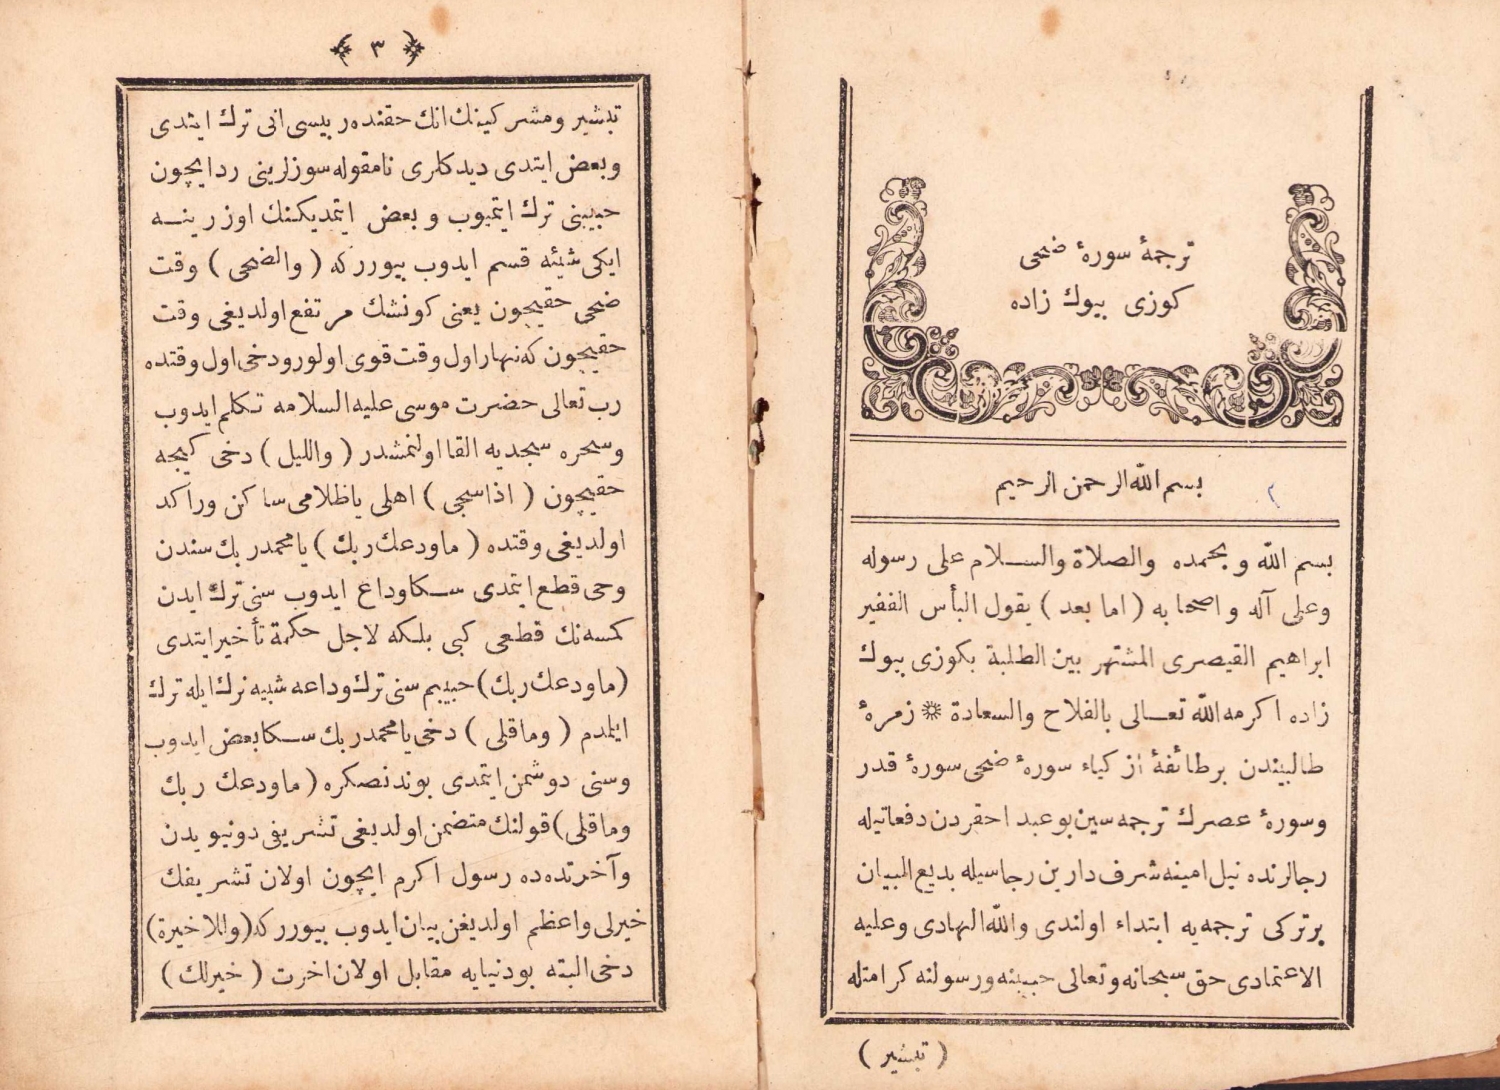 ترجمهٔ سورهٔ ضحى
كوزى بيوك زاده
بسم الله الرحمن الرحيم
٢
بسم الله و بحمده والصلاة والسلام على رسوله
وعلى آله واصحابه (اما بعد) يقول البأس الفقير
ابراهيم القيصرى المشتهر بين الطلبة بكوزى بيوك
زاده اكرمه الله تعالى بالفلاح والسعادة ۞ زمرهٔ
طالبيندن برطائفهٔ از كياء سورهٔ ضحى سورهٔ قدر
وسورهٔ عصرك ترجمه سين بوعبد احقردن دفعاتيله
رجالرنده نيل امينه شرف دارين رجاسيله بديع البيان
برتركى ترجمه يه ابتداء اولندى والله الهادى وعليه
الاعتمادى حق سبحانه وتعالى حبيبنه ورسولنه كرامتله
(تبشير)
٣
تبشير ومشركينك انك حقنده ربيسى انى ترك ايتدى
وبعض ايتدى ديدكلرى نامقوله سوزلرينى رد ايچون
حبيبنى ترك ايتميوب و بعض ايتمديكنك اوزرينه
ايكى شيئه قسم ايدوب بيوررکه (والضحى) وقت
ضحى حقيچون يعنى كونشك مرتفع اولديغى وقت
حقيچون كه نهار اول وقت قوى اولور ودخى اول وقتده
رب تعالى حضرت موسى عليه السلامه تكلم ايدوب
وسحره سجديه القا اولنمشدر (والليل) دخى كيجه
حقيچون (اذا سجى) اهلى ياظلامى ساكن وراكد
اولديغى وقتده (ماودعك ربك) يامحمد ربك سندن
وحى قطع ايتمدى سكا وداع ايدوب سنى ترك ايدن
كمسه نك قطعى كبى بلكه لاجل حكمة تأخير ايتدى
(ماودعك ربك) حبيبم سنى ترك وداعه شبيه ترك ايله ترك
ايلمدم (وماقلى) دخى يامحمد ربك سكا بعض ايدوب
وسنى دوشمن ايتمدى بوندنصكره (ماودعك ربك
وماقلى) قولنك متضمن اولديغى تشريفى دونيويدن
وآخرتده ده رسول اكرم ايچون اولان تشريفك
خيرلى واعظم اولديغن بيان ايدوب بيوررکه (وللاخيرة)
دخى البته بودنيايه مقابل اولان اخرت (خيرلك)